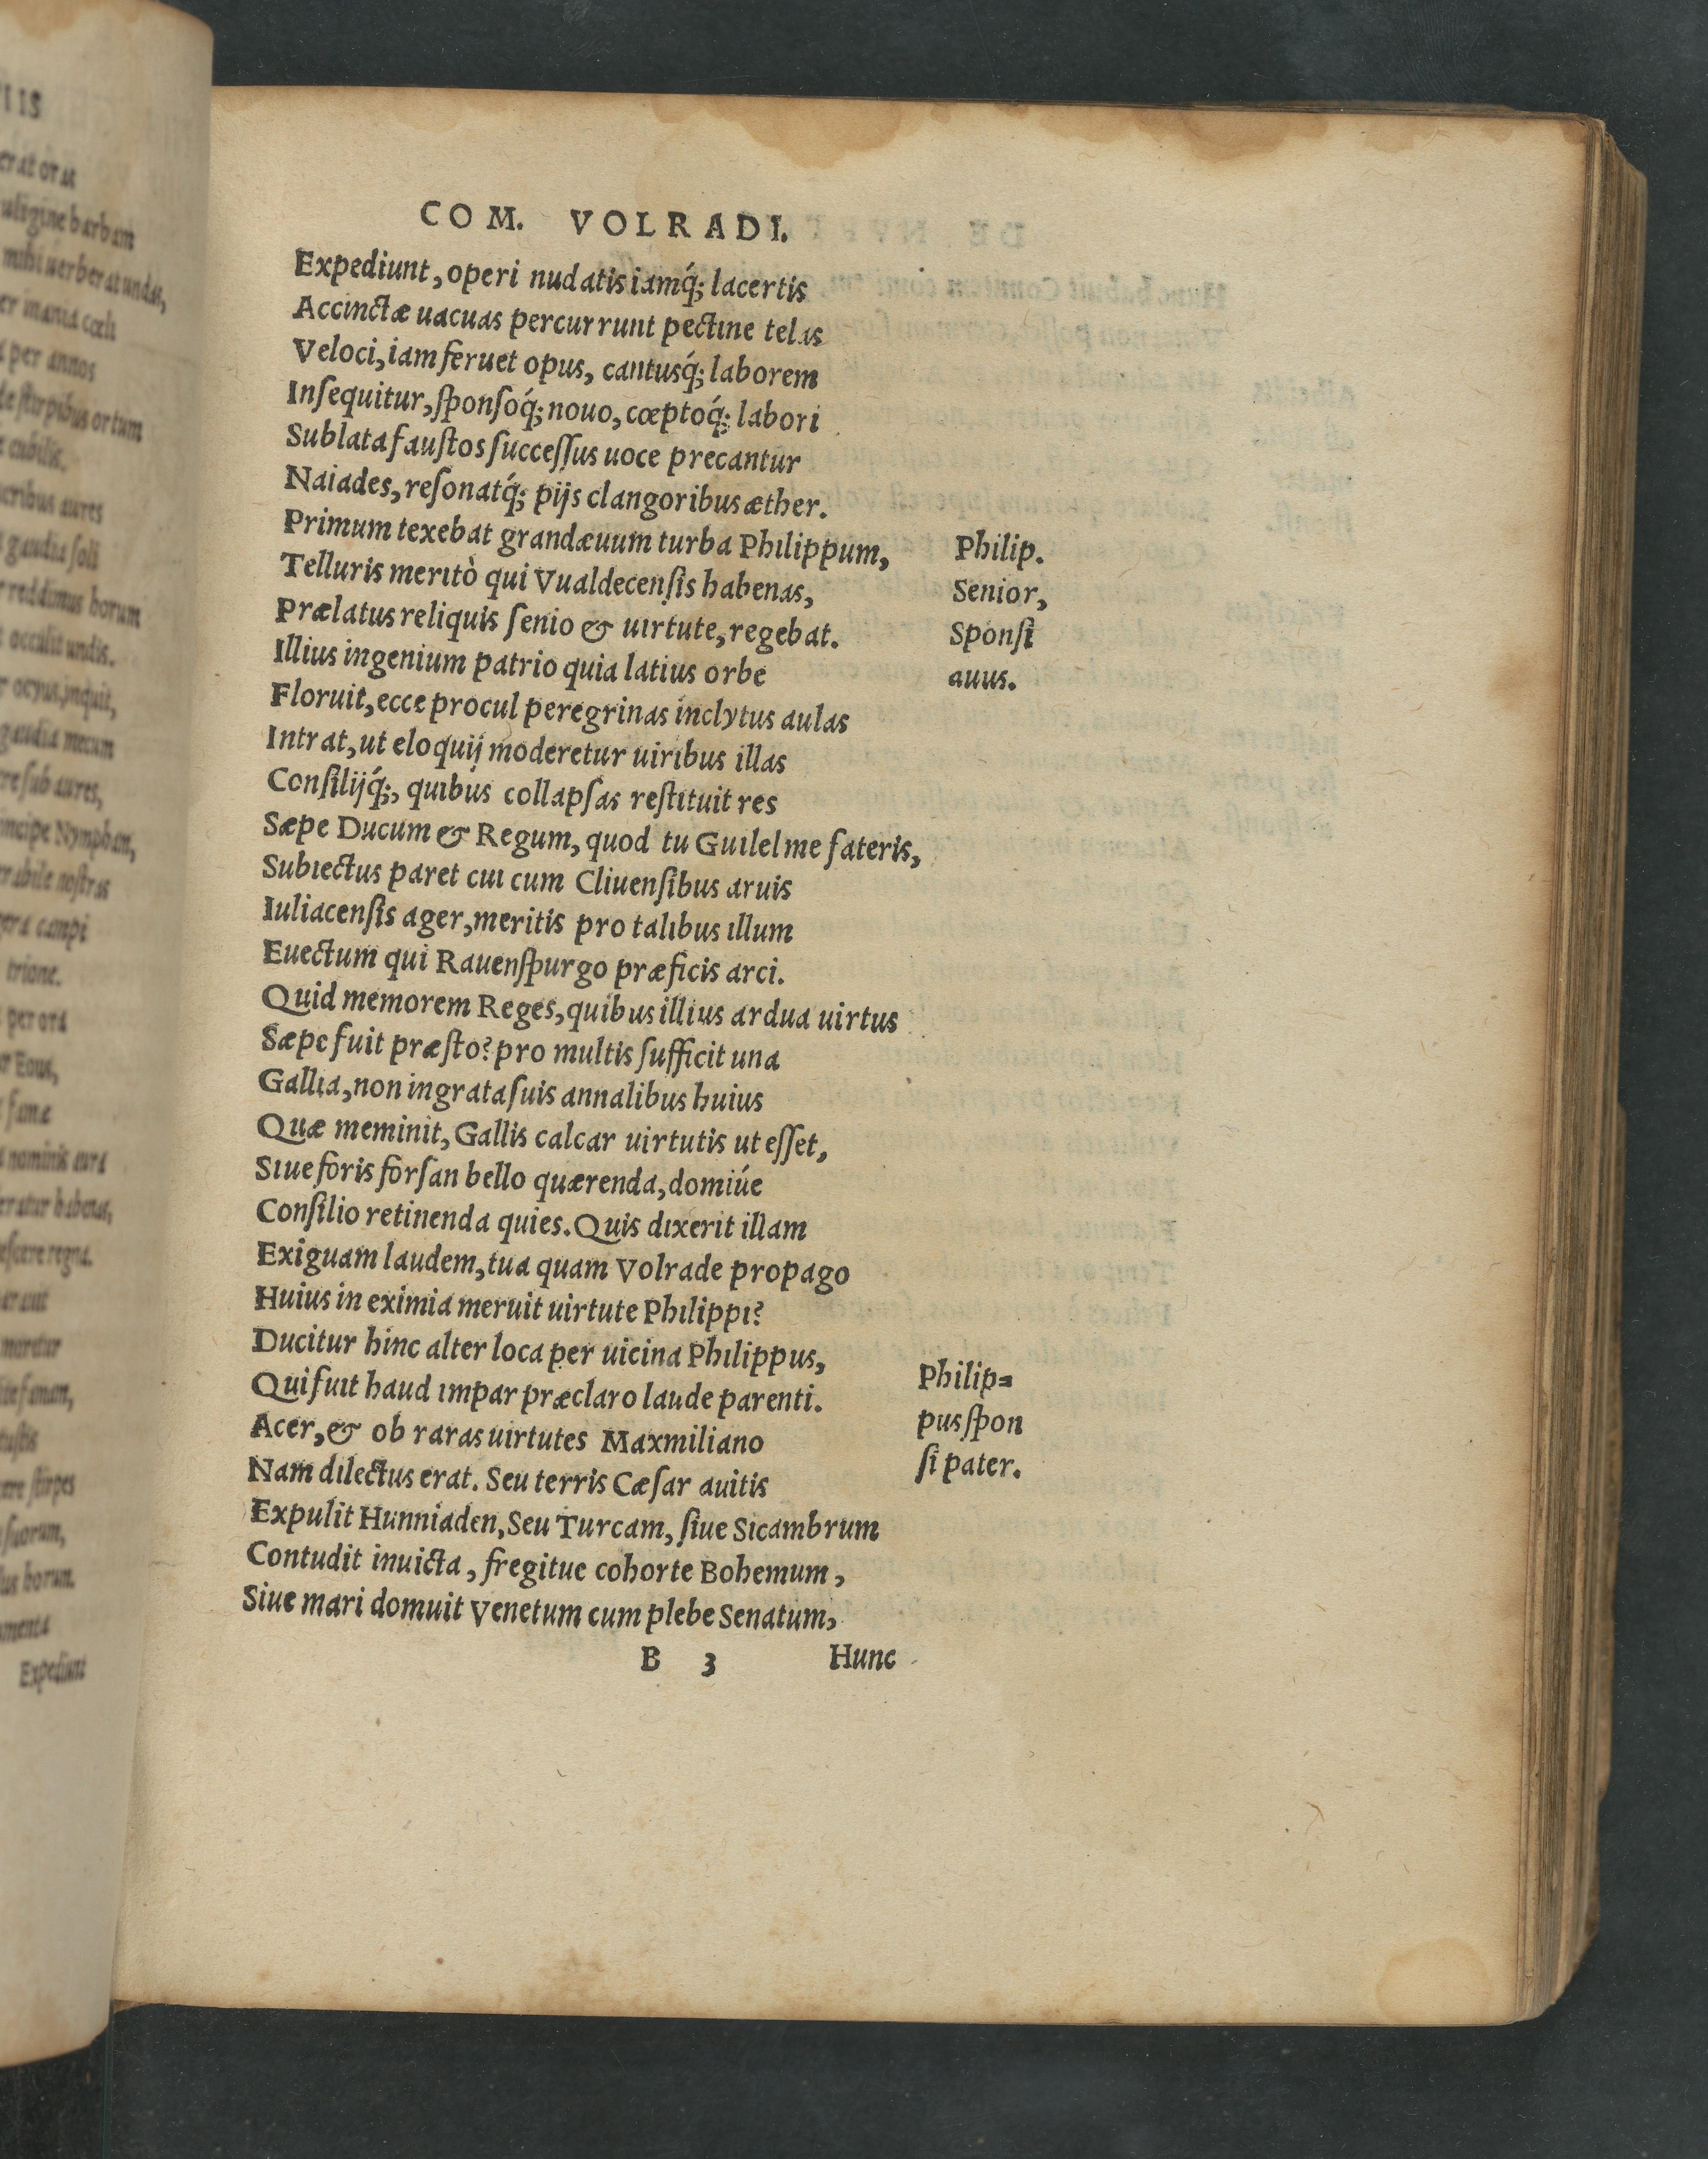 COM. VOLRADI.
Expediunt, operi nudatis iamq́; lacertis
Accinctæ uacuas percurrunt pectine telas
Veloci, iam feruet opus, cantusq́; laborem
Inſequitur, ſponſoq́; nouo, cœptoq́; labori
Sublata fauſtos ſucceſſus uoce precantur
Naiades, reſonatq́; pijs clangoribus æther.
Primum texebat grandæuum turba Philippum,
Telluris meritò qui Vualdecenſis habenas,
Prælatus reliquis ſenio & uirtute, regebat.
Illius ingenium patrio quia latius orbe
Floruit, ecce procul peregrinas inclytus aulas
Intrat, ut eloquij moderetur uiribus illas
Conſilijq́;, quibus collapſas reſtituit res
Sæpe Ducum & Regum, quod tu Guilelme fateris,
Subiectus paret cui cum Cliuenſibus aruis
Iuliacenſis ager, meritis pro talibus illum
Euectum qui Rauenſpurgo præficis arci.
Quid memorem Reges, quibus illius ardua uirtus
Sæpe fuit præſto? pro multis ſufficit una
Gallia, non ingrata ſuis annalibus huius
Quæ meminit, Gallis calcar uirtutis ut eſſet,
Siue foris forſan bello quærenda, domiúe
Conſilio retinenda quies. Quis dixerit illam
Exiguam laudem, tua quam Volrade propago
Huius in eximia meruit uirtute Philippi?
Ducitur hinc alter loca per uicina Philippus,
Qui fuit haud impar præclaro laude parenti.
Acer, & ob raras uirtutes Maxmiliano
Nam dilectus erat. Seu terris Cæſar auitis
Expulit Hunniaden, Seu Turcam, ſiue Sicambrum
Contudit inuicta, fregitue cohorte Bohemum,
Siue mari domuit Venetum cum plebe Senatum,
B 3 Hunc
Philip.
Senior,
Sponſi
auus.
Philip=
pus ſpon
ſi pater.
IIS
erat oras
uligine barbam
mihi uerberat undas,
per annos
de ſtirpibus ortum
cubilis.
aures
gaudia ſoli
reddimus horum
occulit undis.
ocyus, inquit,
gaudia mecum
ſub aures,
Nymphen,
canpi
trione.
per ora
Eous,
nominis cura
habenas,
regna.
ſtirpes
ſuorum,
horum.
Expediunt